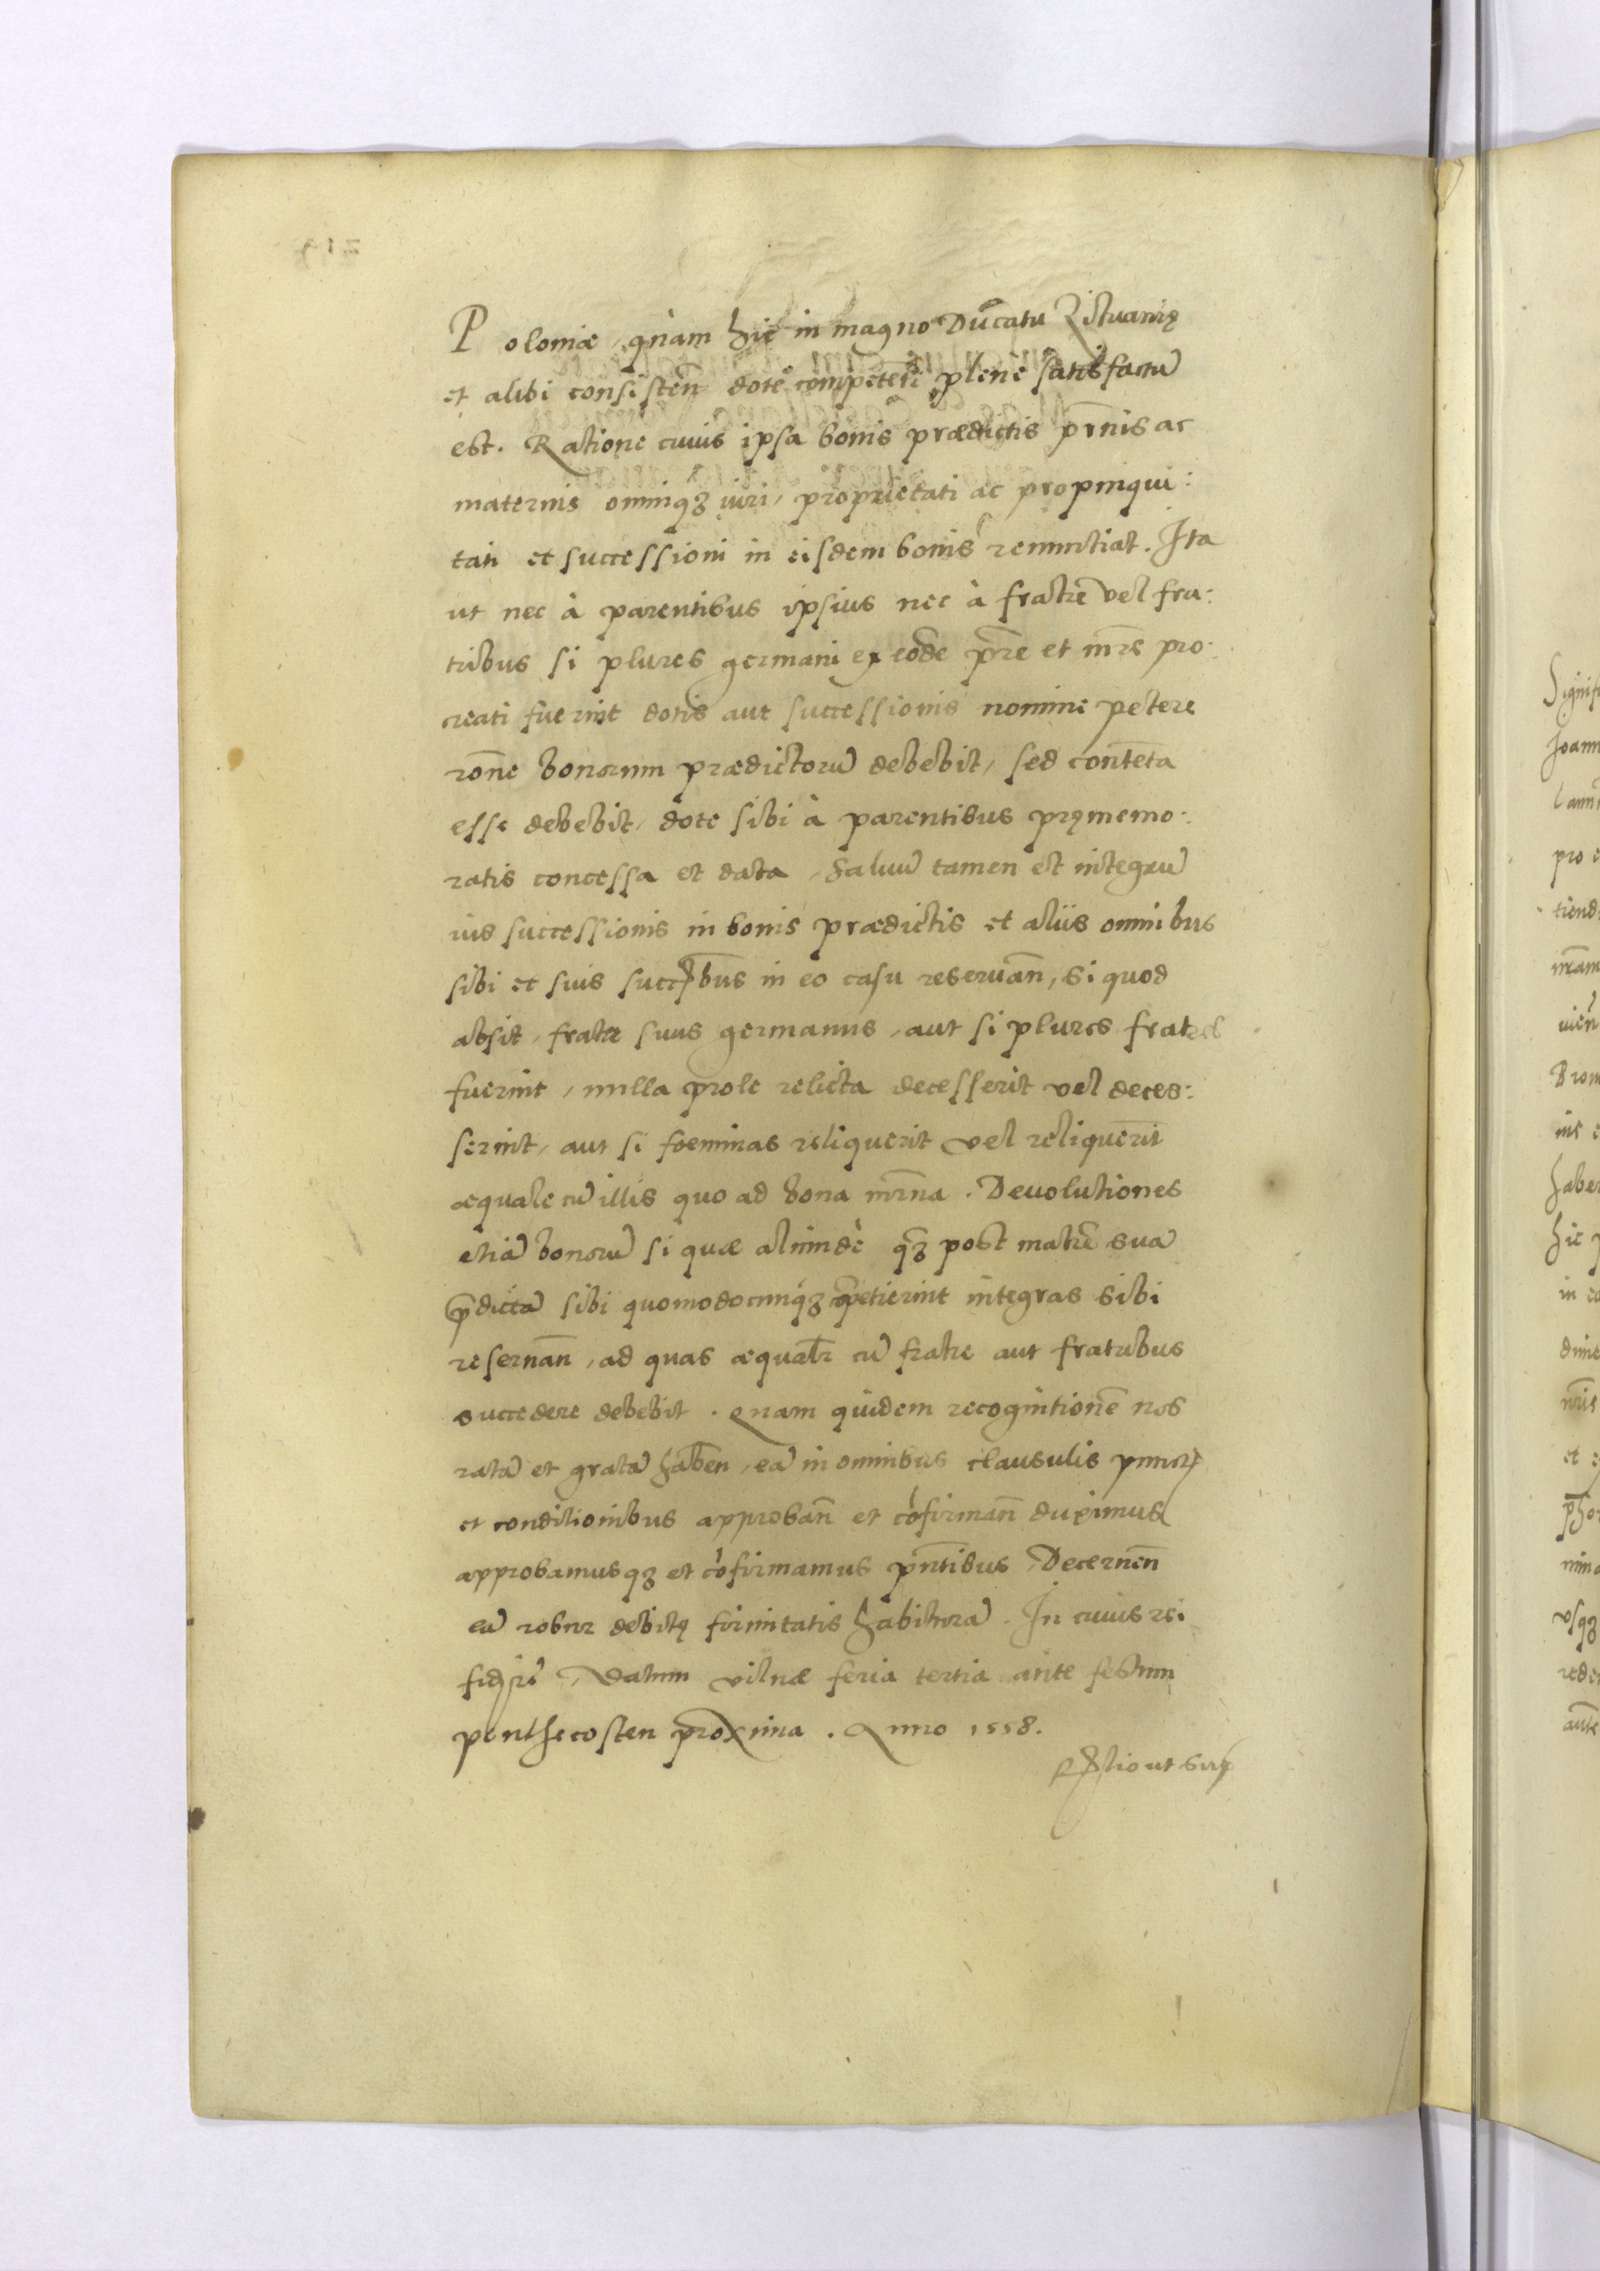 Poloniæ, quàm hic in magno Ducatu Lituanię
et alibi consisteñ dote competeñ plene satisfactũ
est. Ratione cuius ipsa bonis prædictis pr̃nis ac
maternis omniq₃ iuri, proprietati ac propinqui:
tati et successioni in eisdem bonis renuntiat. Ita
ut nec à parentibus ipsius nec à fratre vel fra:
tribus si plures germani ex eodẽ pr̃e et mr̃e pro:
creati fuerint dotis aut successionis nomine petere
rõne bonorum prædictorũ debebit, sed contẽta
esse debebit, dote sibi à parentibus pręmemo:
ratis concessa et data, Saluũ tamen et integrũ
ius successionis in bonis prædictis et aliis omnibus
sibi et suis succ̃bus in eo casu reseruañ, si quod
absit, frater suus germanus, aut si plures fratres
fuerint, nulla prole relicta decesserit vel deces:
serint, aut si fœminas reliquerit vel reliquerint
æquale cũ illis quo ad bona mr̃na. Deuolutiones
etiã bonorũ si quæ aliunde q₃ post matrẽ suã
p̃dictã sibi quomodocunq₃ cõpetierint integras sibi
reseruañ, ad quas æqualr̃ cũ fratre aut fratribus
succedere debebit. Quam quidem recognitionẽ nos
ratã et gratã habeñ, eã in omnibus clausulis punctis
et conditionibus approbañ et cõfirmañ duximus
approbamusq₃ et cõfirmamus p̃ntibus, Decerneñ
eã robur debitę firmitatis habiturã. In cuius rei
fid, Datum Vilnæ feria tertia ante festum
penthecosten proxima. Anno 1558.
Relatio ut supra